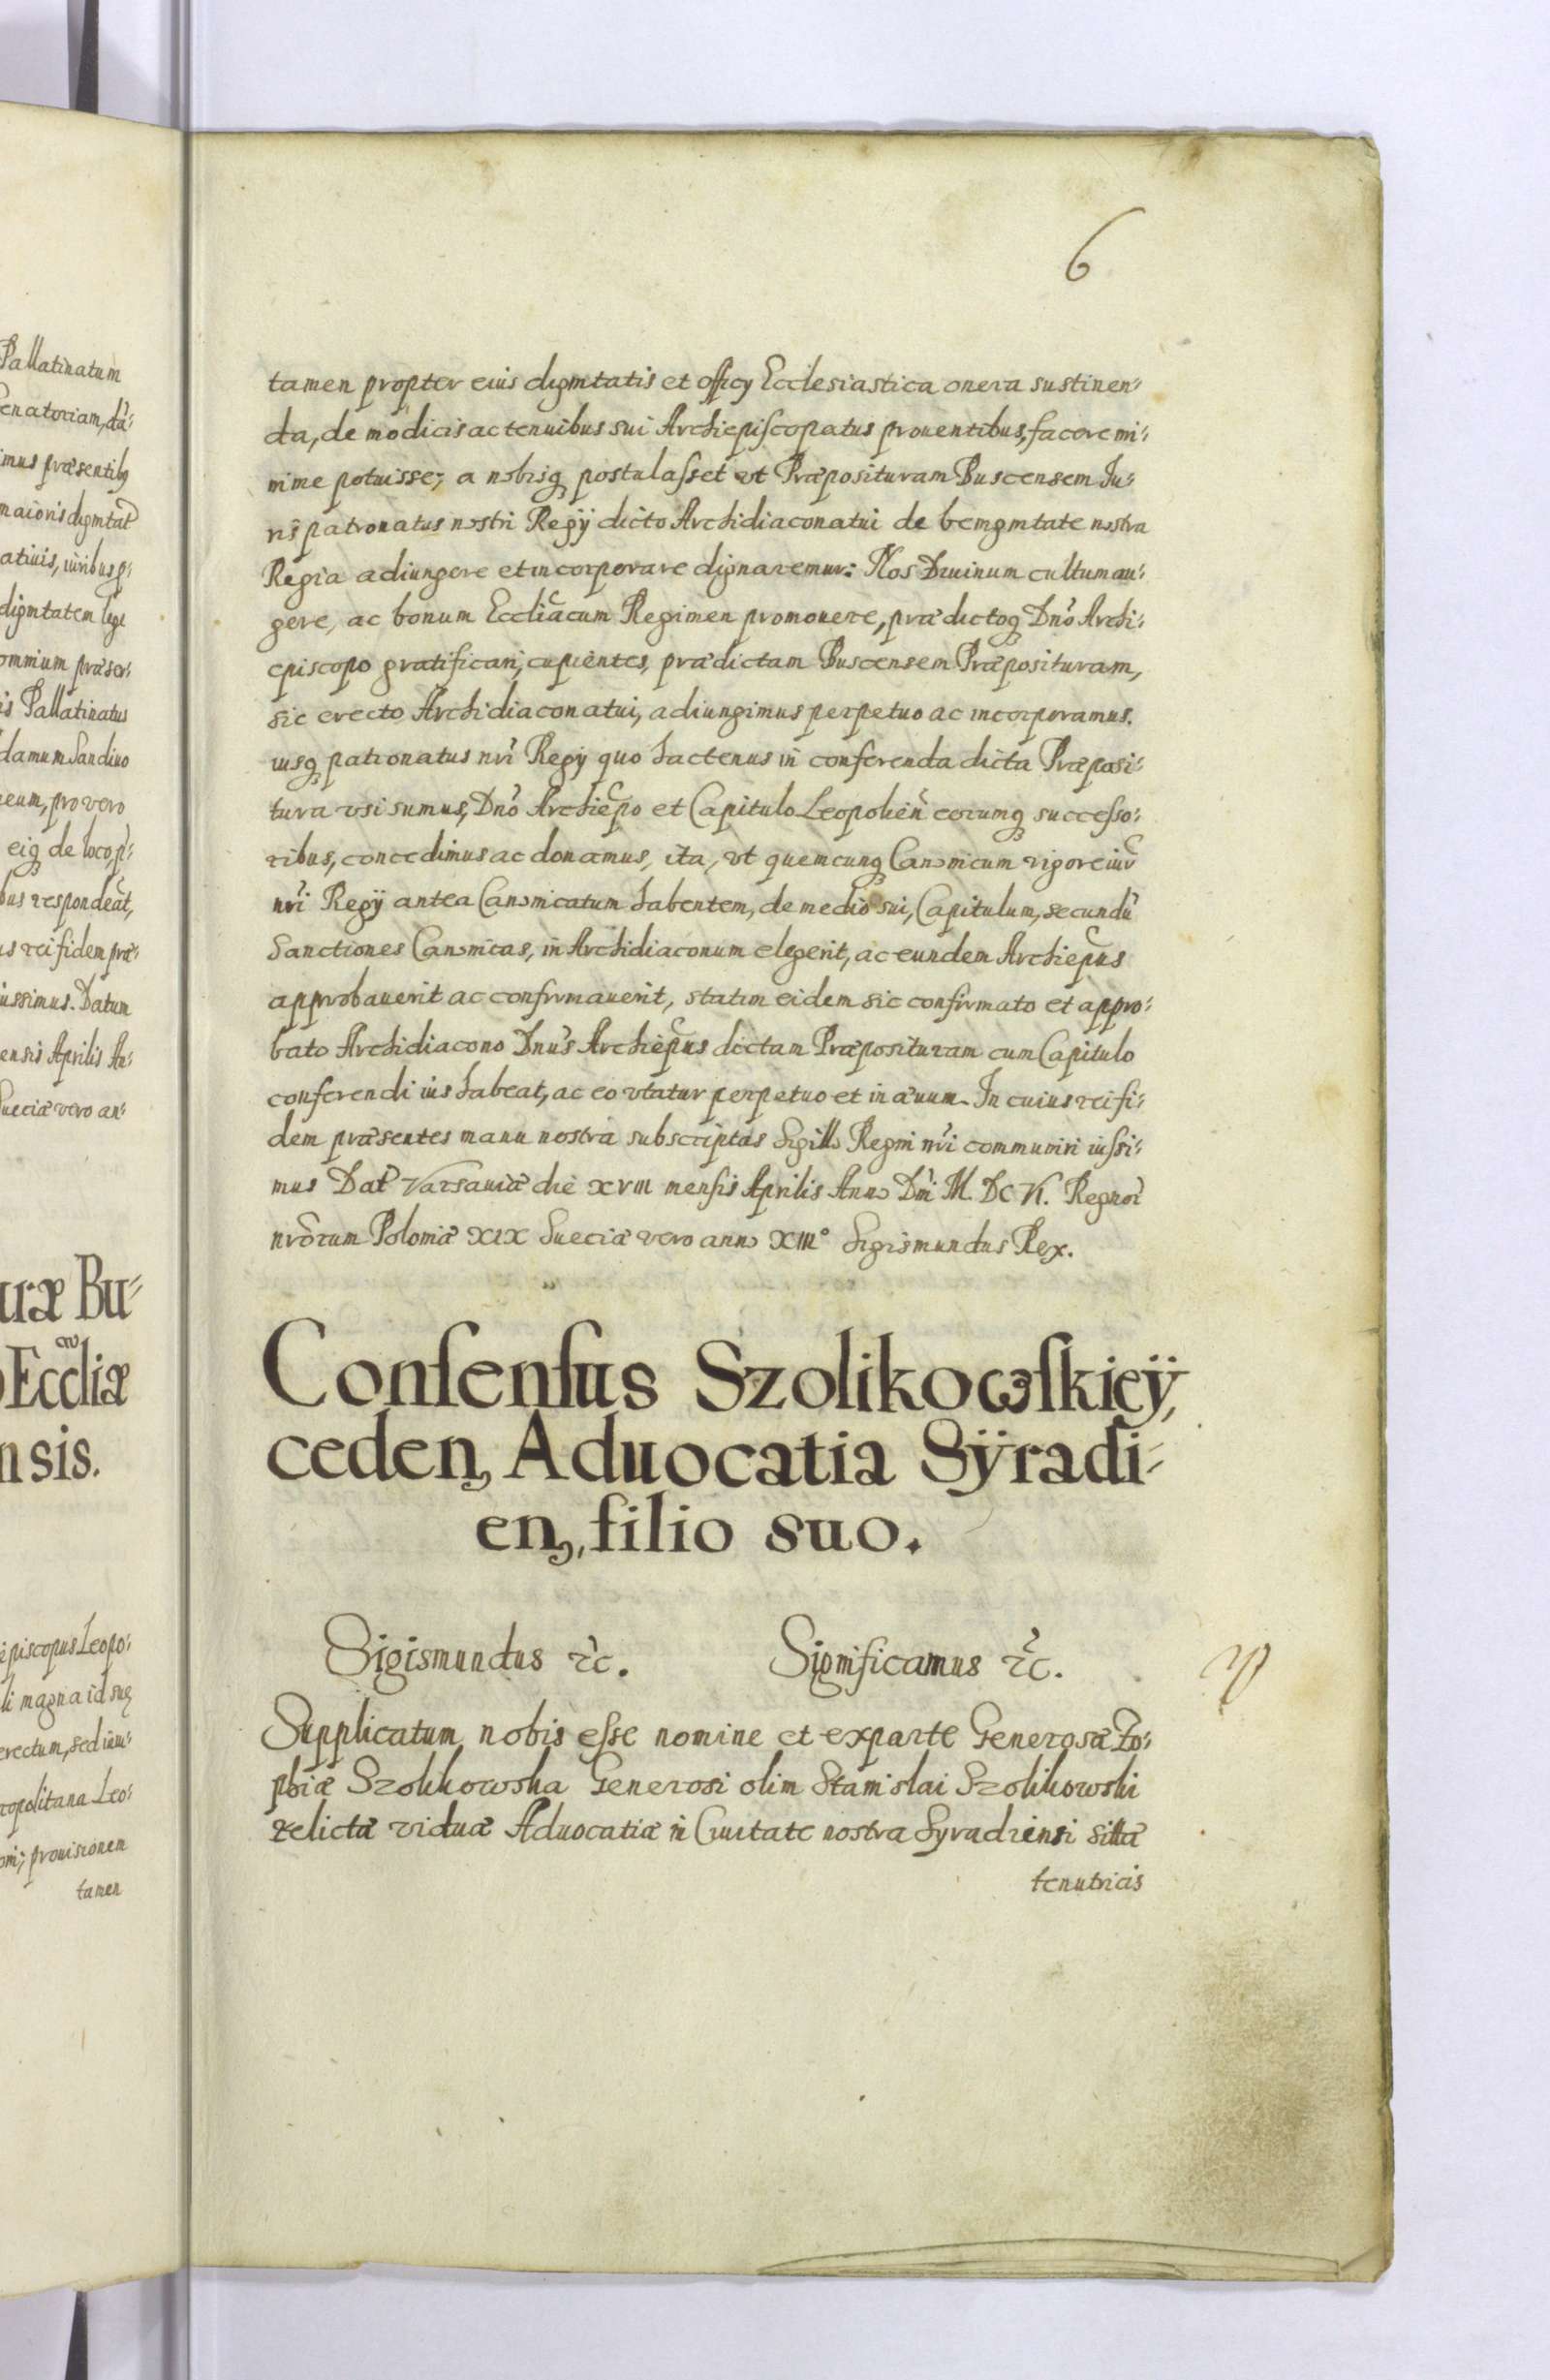 Pallatinatum
enatoriam, dã-
imus præsentibꝫ
maioris digmtat̃
atiuis, iuribus p-
digmtatem lege
omnium præser-
is Pallatinatus
damum Sandiuo
eum, pro vero
eiqꝫ de loco, p-
bus respondeat,
us rei fidem præ-
iussimus. Datum
ensis Aprilis An-
Sueciæ vero an-
uræ Bu-
Eccliæ
nsis.
episcopus Leopo-
li magna id suę
erectum, sed inui-
ropolitana Leo-
om; prouisionem
tamen
6
tamen propter eius digmtatis et officÿ Ecclesiastica onera sustinen-
da, de modicis ac tenuibus sui Archiepiscopatus prouentibus, facere mi-
nime potuisse; a nobisqꝫ postulasset vt Præposituram Buscensem Iu-
ris patronatus nostri Regÿ dicto Archidiaconatui de benigmtate nostra
Regia adiungere et incorporare dignaremur: Nos Diuinum cultum au-
gere, ac bonum Eccliãcum Regimen promouere, prædictoqꝫ Dnõ Archi-
episcopo gratificari, cupientes, prædictam Buscensem Præposituram,
sic erecto Archidiaconatui, adiungimus perpetuo ac incorporamus.
iusqꝫ patronatus nrĩ Regÿ quo hactenus in conferenda dicta Præposi-
tura vsi sumus, Dnõ Archiẽpo et Capitulo Leopolieñ eorumqꝫ successo-
ribus, concedimus ac donamus, ita, vt quemcunqꝫ Canonicum vigore iur̃
nrĩ Regÿ antea Canonicatum habentem, de medio sui, Capitulum, secundũ
Sanctiones Canonicas, in Archidiaconum elegerit, ac eundem Archiẽpus
approbauerit ac confirmauerit, statim eidem sic confirmato et appro-
bato Archidiacono Dnũs Archiẽpus dictam Præposituram cum Capitulo
conferendi ius habeat, ac eo vtatur perpetuo et in æuum. In cuius rei fi-
dem præsentes manu nostra subscriptas Sigillo Regni nrĩ communiri iussi-
mus Dat̃ Varsauiæ die XVIII mensis Aprilis Anno Dnĩ M. DC VI. Regnor̃
nrõrum Poloniæ XIX Sueciæ vero anno XIII° Sigismundus Rex.
Consensus Szolikowskieÿ,
ceden, Aduocatia Sÿradi-
en, filio suo.
Sigismundus ꝛc̃. Significamus ꝛc̃.
Supplicatum nobis esse nomine et ex parte Generosæ Zo-
phiæ Szolikowska Generosi olim Stanislai Szolikowski
relictæ viduæ Aduocatiæ in Ciuitate nostra Syradiensi sittæ
tenutricis